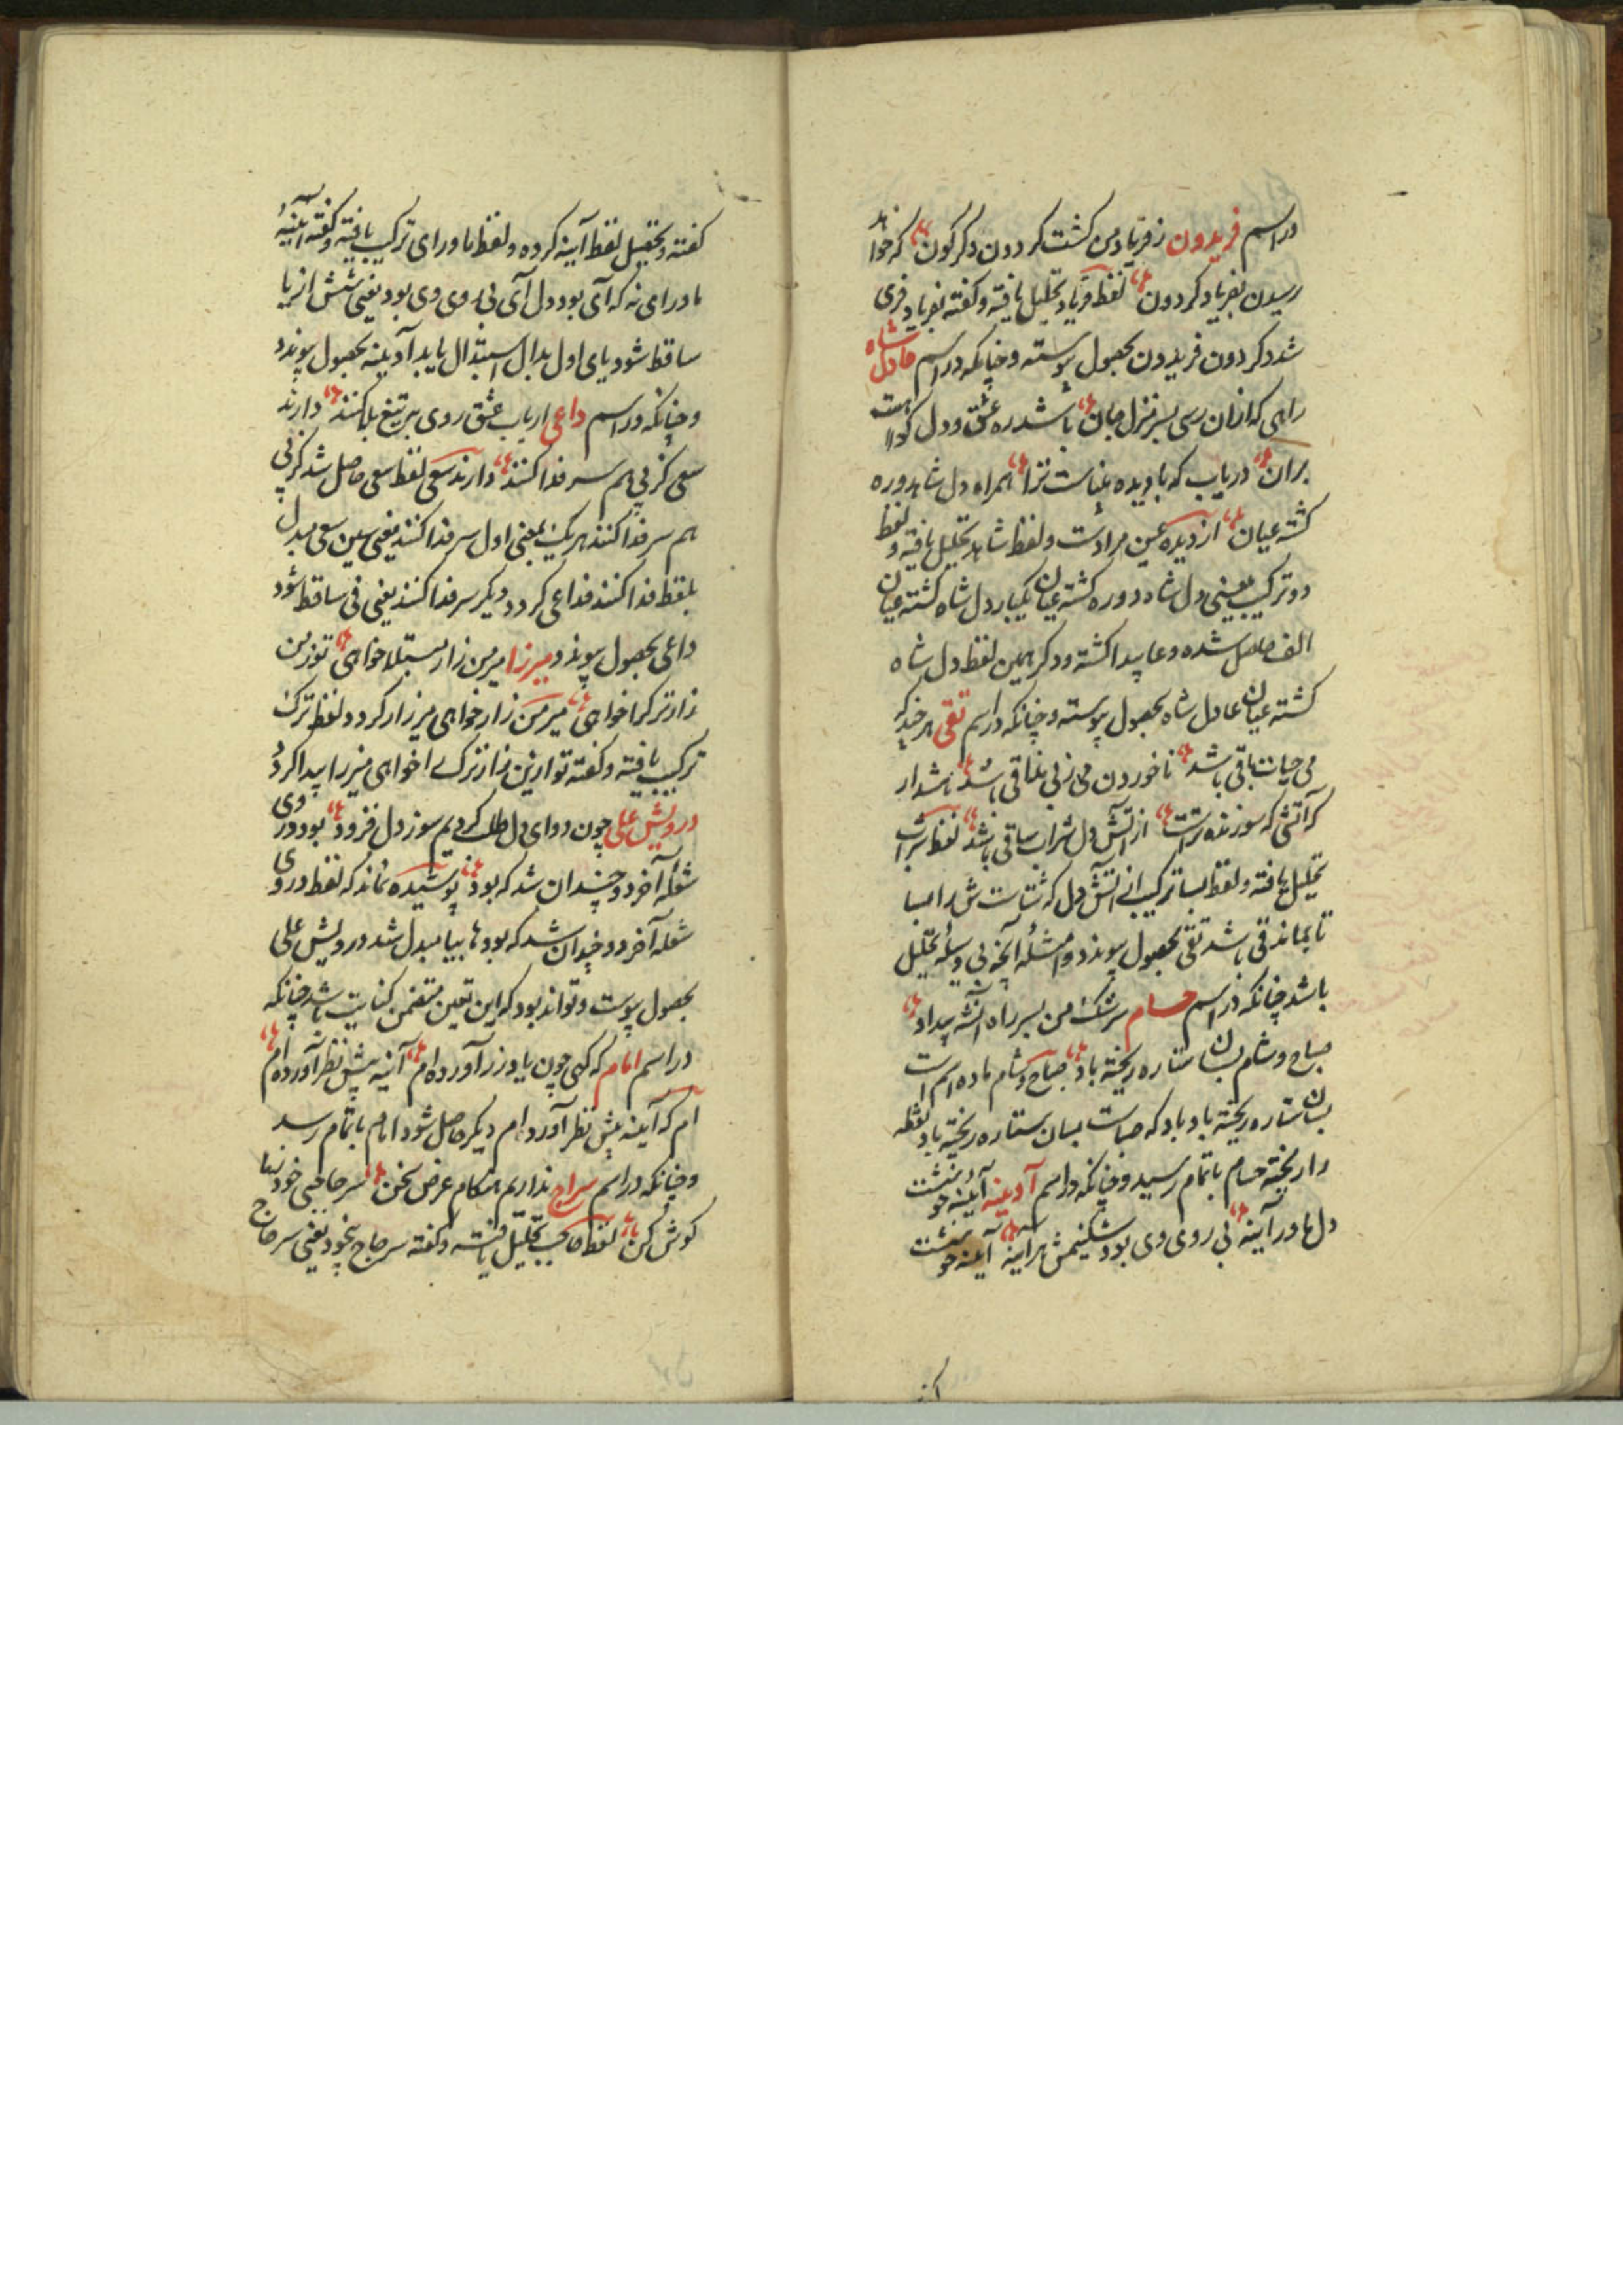 در اسم فریدون ز فریاد من کشت کردون دکرکون که خواهد
رسیدن بفریاد کردون لفظ فریاد تحلیل یافته و کفته بفریاد فری
شد کردون فریدون بحصول پیوسته و چنانکه در اسم عادل شاه
راهی که ازان رسی بسر منزل جان باشد ره عشق و دل کواهست
بران دریاب که بادیده عیانست ترا همراه دل شاهد و ره
کشته عیان از دیده عین مرادست و لفظ شاهد تحلیل یافته و لفظ
دو ترکیب یعنی دل شاه دو ره کشته عیان یکبار دل شاه کشته عیان
الف حاصل شده و عا پیدا کشته و دکر همین لفظ دل شاه
کشته عیان عادل شاه بحصول پیوسته و چنانکه در اسم تقی هرچند که
می حیات باقی باشد ناخوردن می ز بی نفاقی باشد هشدار
که آتشی که سوزنده ترست از آتش دل شراب ساقی باشد لفظ شراب
تحلیل یافته و لفظ بسا ترکیب از آتش دل که تاست ش را بسا
تا بماند قی باشد تقی بحصول پیوندد و امثله آنچه بی وسیله تحلیل
باشد چنانکه در اسم حسام سرشک من بسر راه آن شه بیداد
صباح و شام بسان ستاره ریخته باد صباح و شام ماده اسم است
بسان ستاره ریخته باد باد که صباست بسان ستاره ریخته باد نقطه
را ریخته حسام باتمام رسید و چنانکه در اسم آدینه آینه چو نیست
دل ما در آینه بی روی وی بود شکنیمش هر آینه آینه چو نیست
کفته و تحصیل لفظ آینه کرده و لفظ ماورای ترکیب یافته و کفته آینه
ماورای نه که آی بود دل آی بی روی وی بود یعنی شش از یا
ساقط شود یای اول بدال استبدال یابد آدینه بحصول پیوندد
و چنانکه در اسم داعی ارباب عشق روی بر تیغ بلا کنند دارند
سعی کز پی هم سر فدا کنند دارند سعی لفظ سعی حاصل شد کز پی
هم سر فدا کنند هر یک بمعنی اول سر فدا کنند یعنی سین سعی مبدل
بلفظ فدا کنند فداعی کردد دیکر سر فدا کنند یعنی فی ساقط شود
داعی بحصول پیوندد میرزا میر من زار مبتلا خواهی تو زمن
زارتر کرا خواهی میر من زار خواهی میر زار کردد و لفظ ترک
ترکیب یافته و کفته تو ازین زار ترک را خواهی میرزا پیدا کردد
درویش علی چون دوای دل طلب کردیم سوز دل فزود بود در وی
شعله آخر دوچندان شد که بود پوشیده نماند که لفظ در وی
شعله آخر دوچندان شد که بود ها بیا مبدل شد درویش علی
بحصول پیوست و تواند بود که این تعین متضمن کنایت باشد چنانکه
در اسم امام که کهی چون یاد زر آورده ام آینه پیش نظر آورده ام
ام که آینه پیش نظر آورد ام دیکر حاصل شود امام باتمام رسد
و چنانکه در اسم سراج نداریم هنکام عرض سخن سر حاجبی خود بیا
کوش کن باز لفظ حاجب تحلیل یافته و کفته سر حاج بیخود یعنی سر حاج